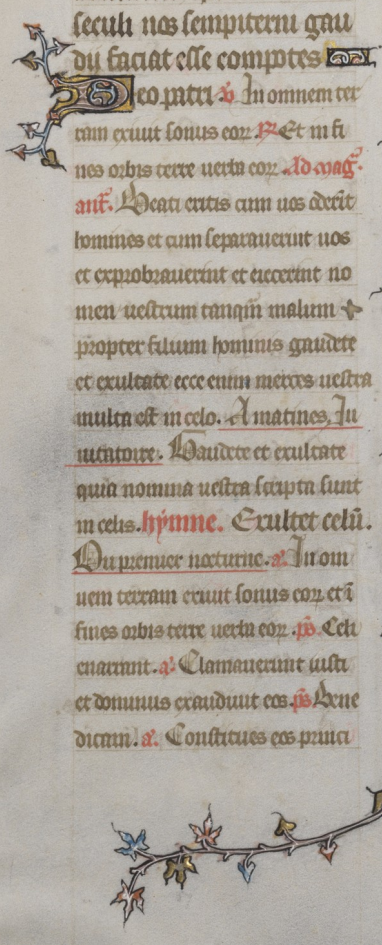 seculi nos sempiterni gau
dii faciat esse compotes
Deo patri. v̄. In omnem ter
ram exiuit sonus eoꝝ ꝶ. Et in fi
nes orbis terre uerba eoꝝ. Ad mag̃.
ant̃. Beati eritis cum uos oderīt
homines et cum separauerint uos
et exprobrauerint et eiecerint no
men uestrum tanqm̃ malum
propter filium hominis gaudete
et exultate ecce enim merces uestra
multa est in celo. A matines, In
uitatoire. Gaudete et exultate
quia nomina uestra scripta sunt
in celis. hymne. Exultet celū.
Du premier nocturne. a. In om
nem terram exiuit sonus eoꝝ et ī
fines orbis terre uerba eoꝝ. p̄s. Celi
enarrant. a. Clamauerunt iusti
et dominus exaudiuit eos. p̄s Bene
dicam. a. Constitues eos princi